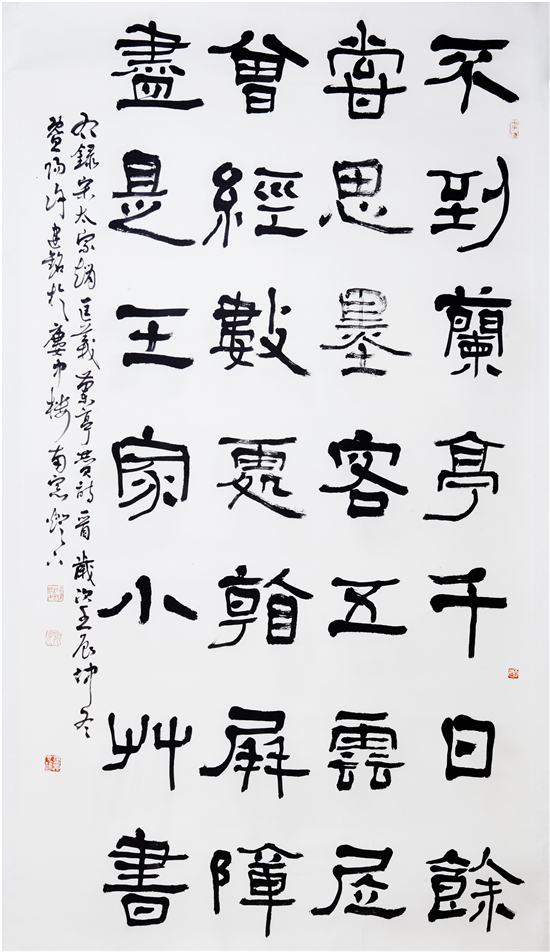 不到蘭亭千日餘
嘗思墨客五雲居
曾經數處看屏障
盡是王家小艸書
右錄宋太宗趙匡義蘭亭詩一首歲次壬辰仲冬
陽許建銘於中樓南窗燈下